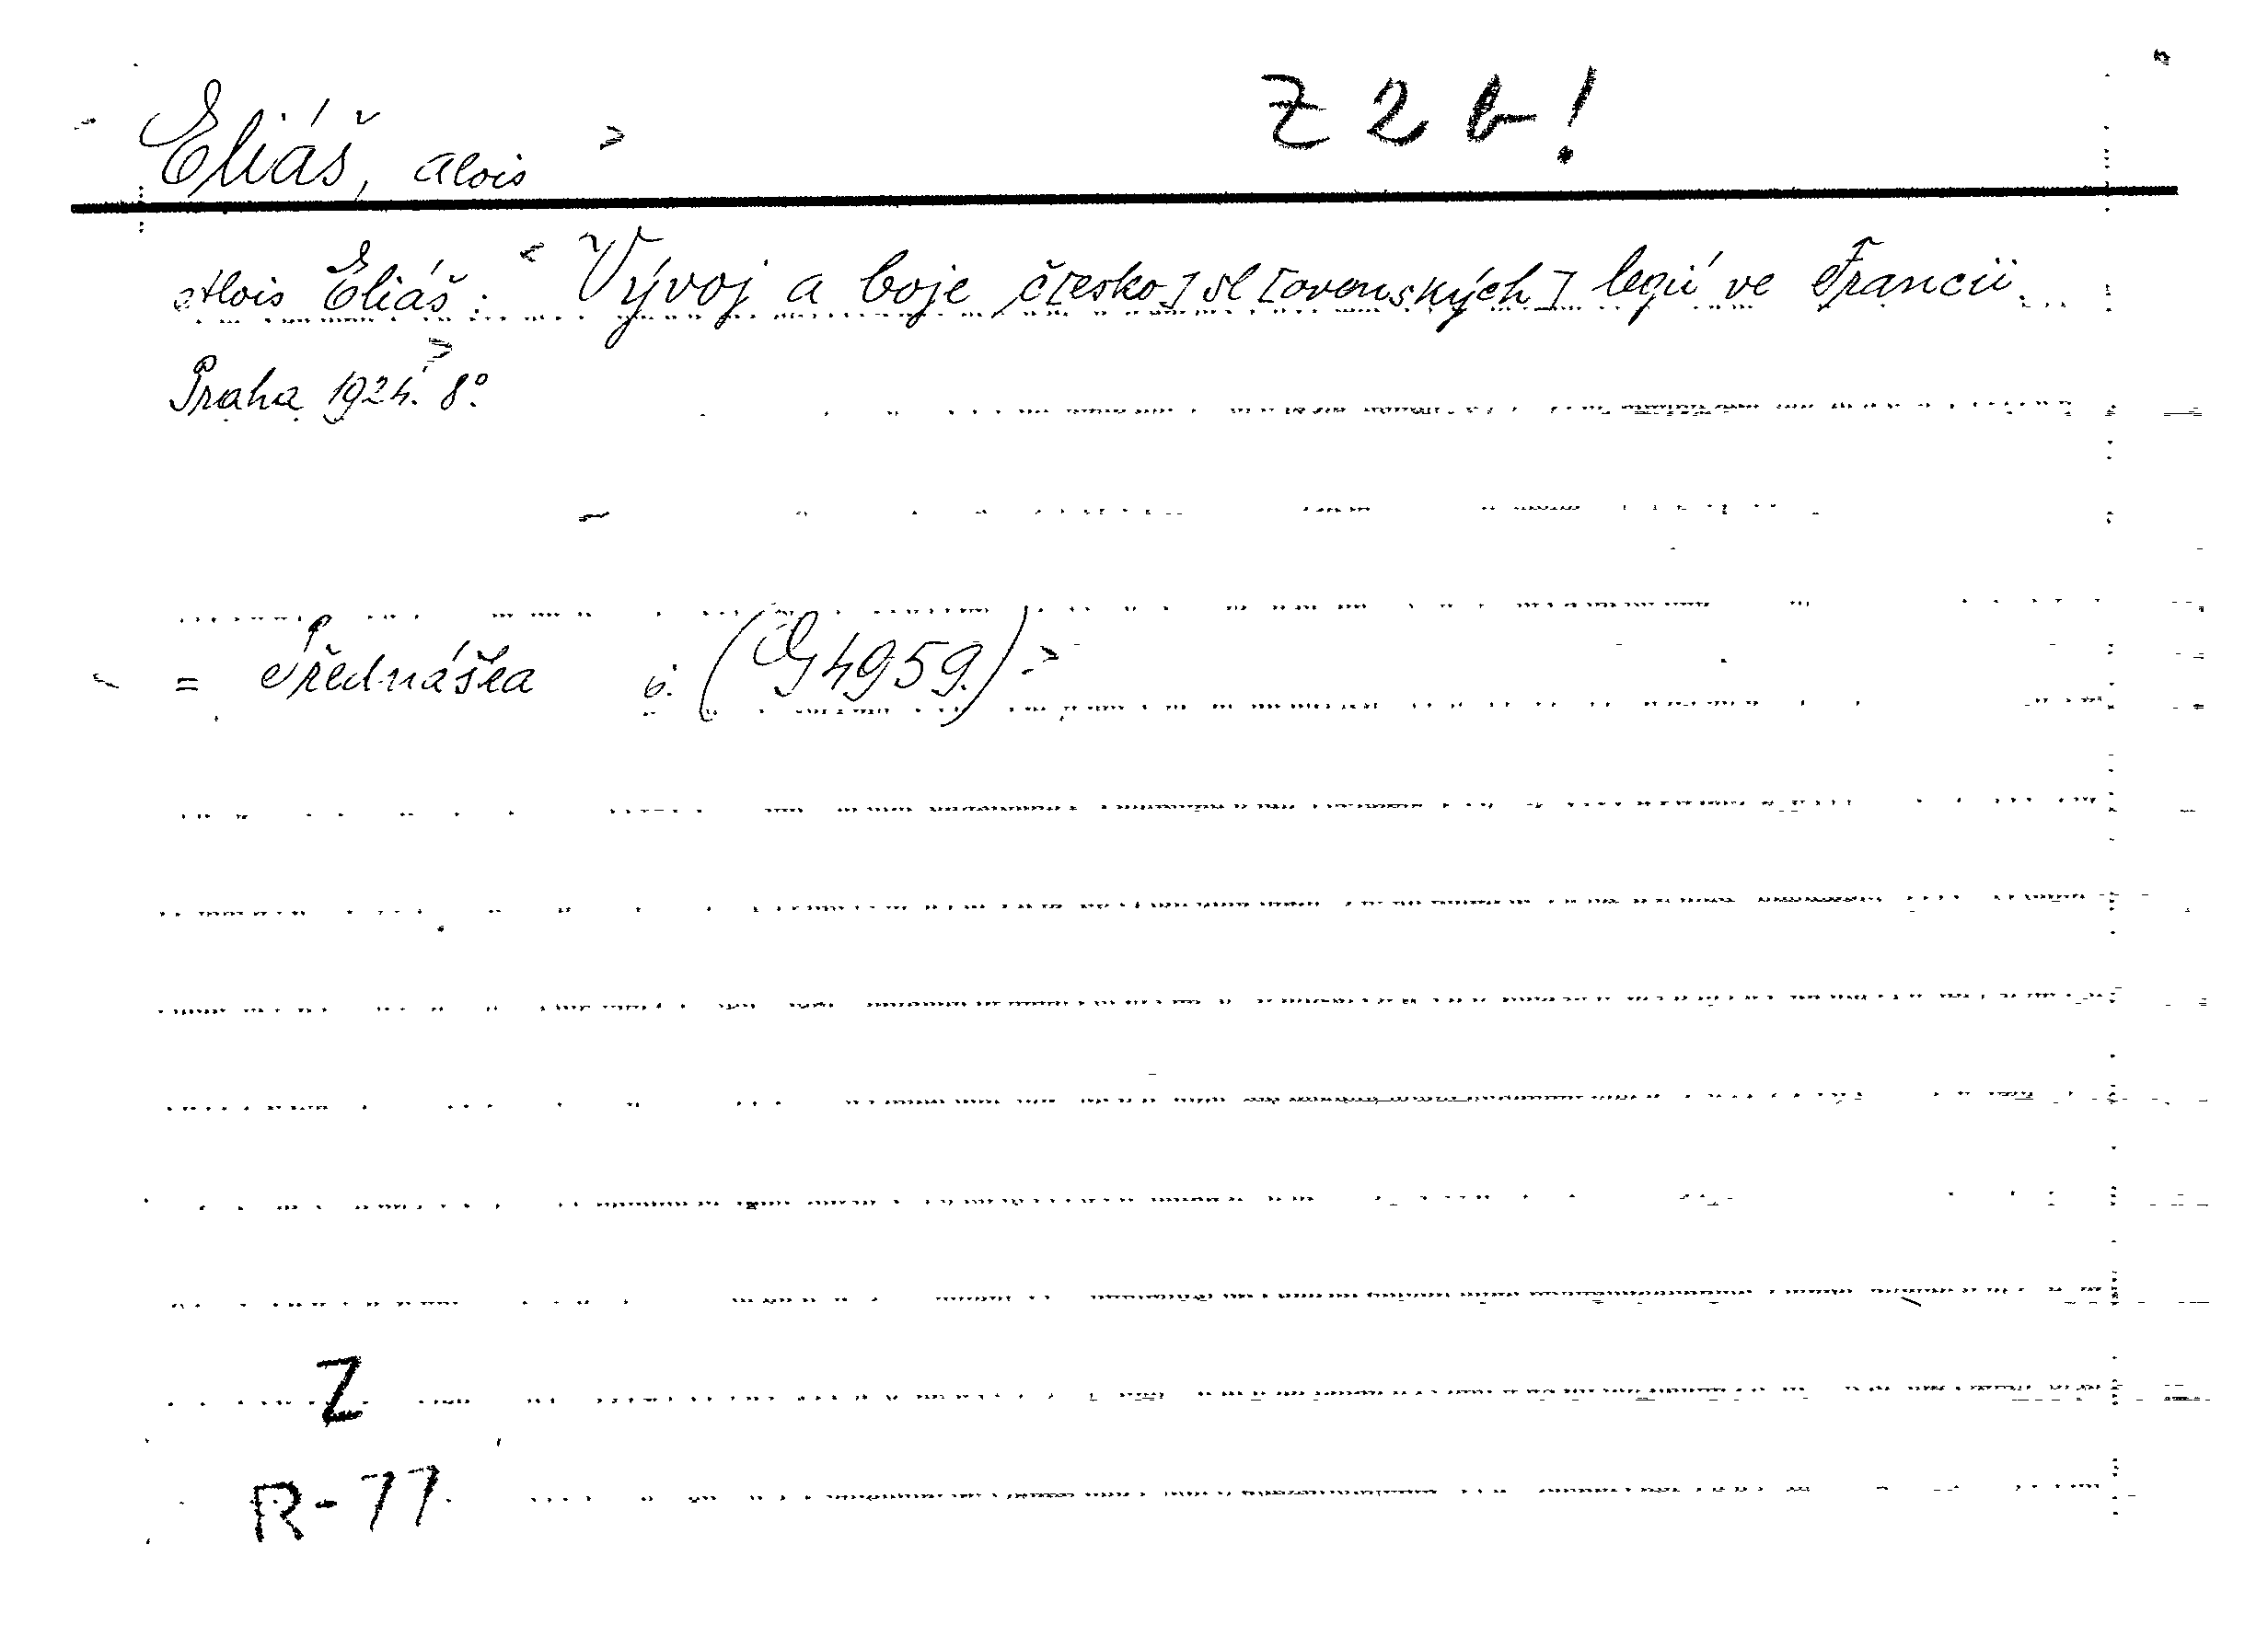 Eliáš, Alois Z 2 b!
Alois Eliáš: Vývoj a boje č[esko]sl[ovenských] legií ve Francii.
Praha 1924. 8°.
= Přednáška č. (G 4959.)
Z
R-77